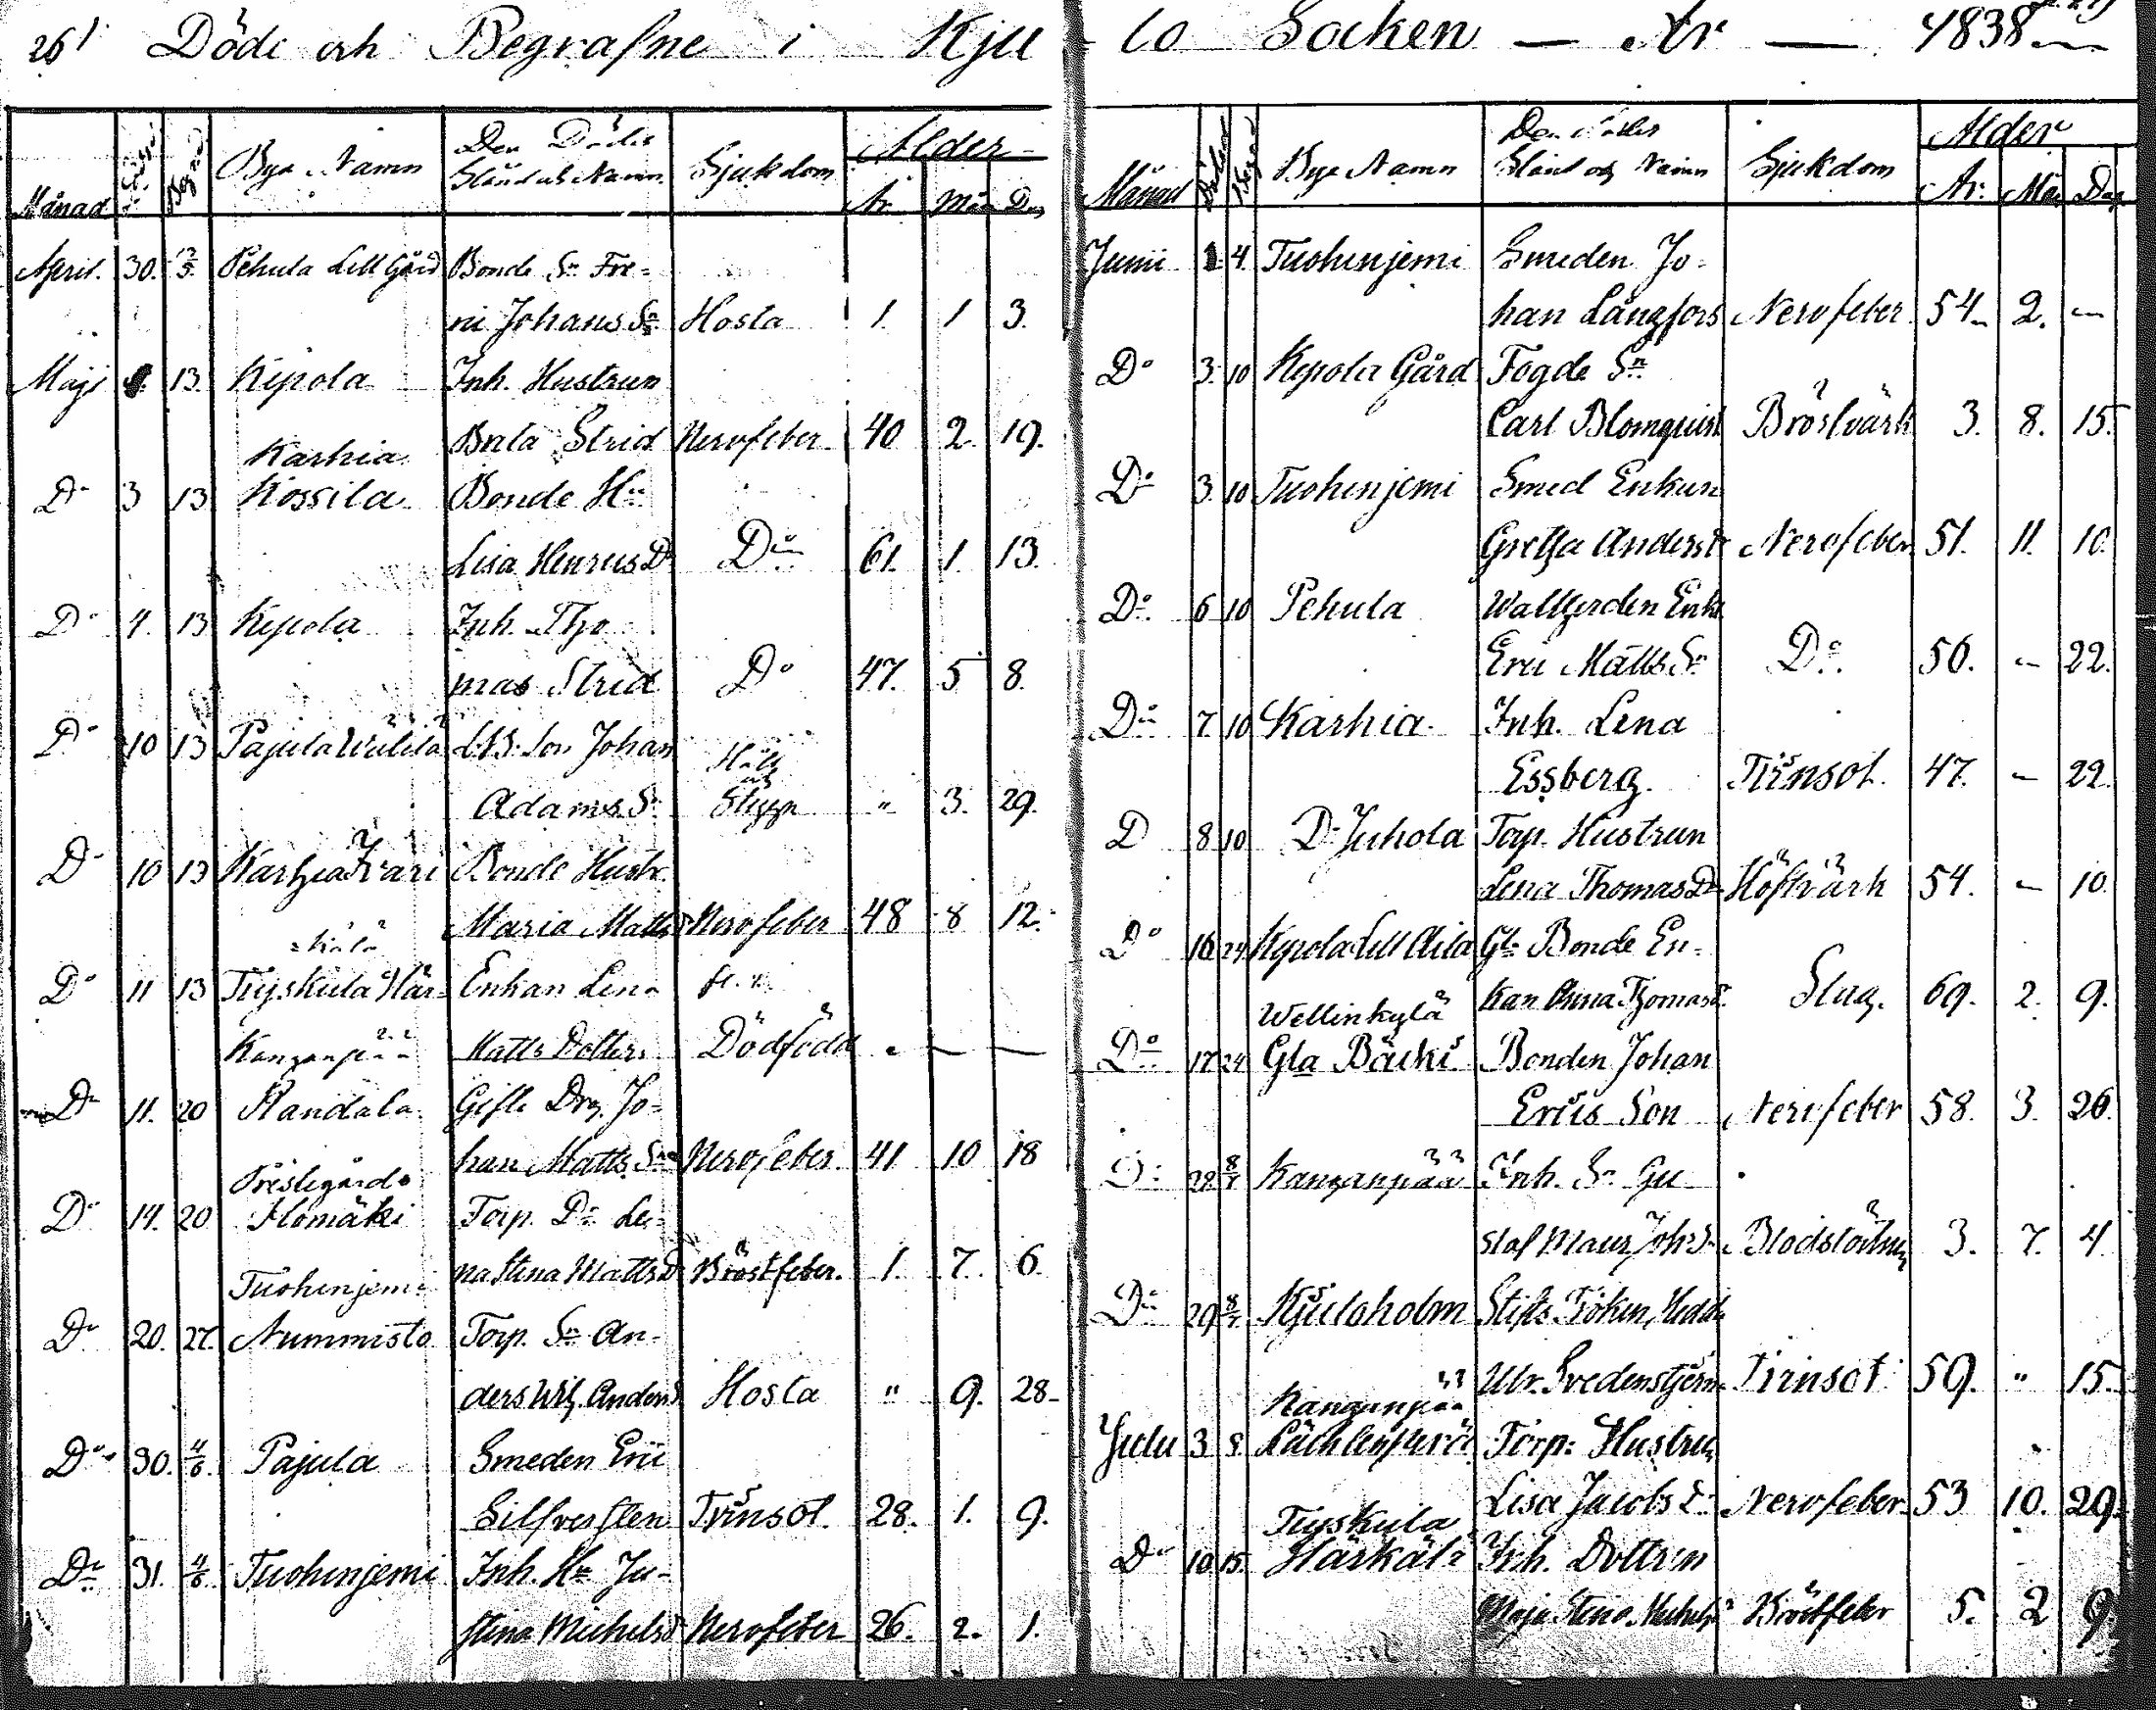 261 Döde och Begrafne i Kju-lo Socken — År — 1838
Månad Döde Begrof Bya Namn Den Dödes Stånd och Namn Sjukdom Ålder
År Mån Dag
April. 30. 13/5. Pehula Lill Gård Bonde Sn Fre-
Johans Sn Hosta 1. 1 3.
Maji 13. Kepola Inh. Hustrun
Strid Nervfeber 40 2. 19.
Karhia
Do 3 13 Kossila Bonde Hu
Lisa Henricsd Do 61. 1. 13.
Do 4. 13 Kepola Inh. Tho
mas Strid Do 47. 5 8.
Do 10 13 Pajula Son Johan
Håll och
Adams Sn Stygn " 3. 29.
Do 10 13 Karhia Bonde Hustr.
Maria Matts Nervfeber 48 8 12.
Do 11 13 Tujskula Här- Enkan Lena
kälä
Matts Dotter Dödfödd — — —
Kanganpää
Do 11. 20 Randala Gifte Drg. Jo-
han Matts Sn Nervfeber 41 10 18
Prestegårds
Do 14. 20 Ilomäki Torp. Dr Le-
na Stina Matts D Bröstfeber. 1. 7. 6
Tuohenjemi
Do 20. 27. Nummisto Torp. Sn An-
ders Wilh. Anders Hosta " 9. 28
Do 30. 4/6. Pajula Smeden Eric
Silfversten Tvinsot. 28. 1. 9.
Do 31. 4/6. Tuohenjemi Inh. Hu Ju-
stina Michelsd Nervfeber 26. 2. 1.
Månad Döde Begr Bya Namn Den Dödes Stånd och Namn Sjukdom Ålder
År: Mån Dag
Junii 1 4. Tuohenjemi Smeden Jo-
han Långfors Nervfeber 54 2. —
Do 3. 10 Kepola Gård Fogde Sn
Carl Blomquist Bröstvärk 3. 8. 15.
Do 3. 10 Tuohenjemi Smed Enkun
Gretha Andersd Nervfeber 51. 11. 10.
Do 6 10 Pehula Enk
Eric Matts Sn Do 56. — 22.
Do 7 10 Karhia Inh. Lena
Essberg. Tvinsot. 47. — 22.
D 8 10 Do Juhola Torp. Hustrun
Lena Thomas D Höftvärk 54. — 10.
Do 16 24 Kepola Lill Gl. Bonde En-
kan Anna Thomasd. Slag. 69. 2. 9.
Wellinkylä
Do 17 24 Gla Bäcki Bonden Johan
Erics Son Nervfeber 58. 3. 26.
Do 28. 8/7 Kanganpää Inh. Sn Gu-
staf Maur. Joh. S. Blodstörtning 3. 7. 4
Do 29 8/7 Kjuloholm Stifts Fröken, Hedd
Ulr. Svedenstjerna Tvinsot 59. " 15.
Kanganpää
Julii 3 8. Torp: Hustrun
Lisa Jacobs D. Nervfeber 53 10. 29.
Tujskula
Do 10 15. Härkälä Inh. Dottren
Maja Stina Bröstfeber 5. 2 9.